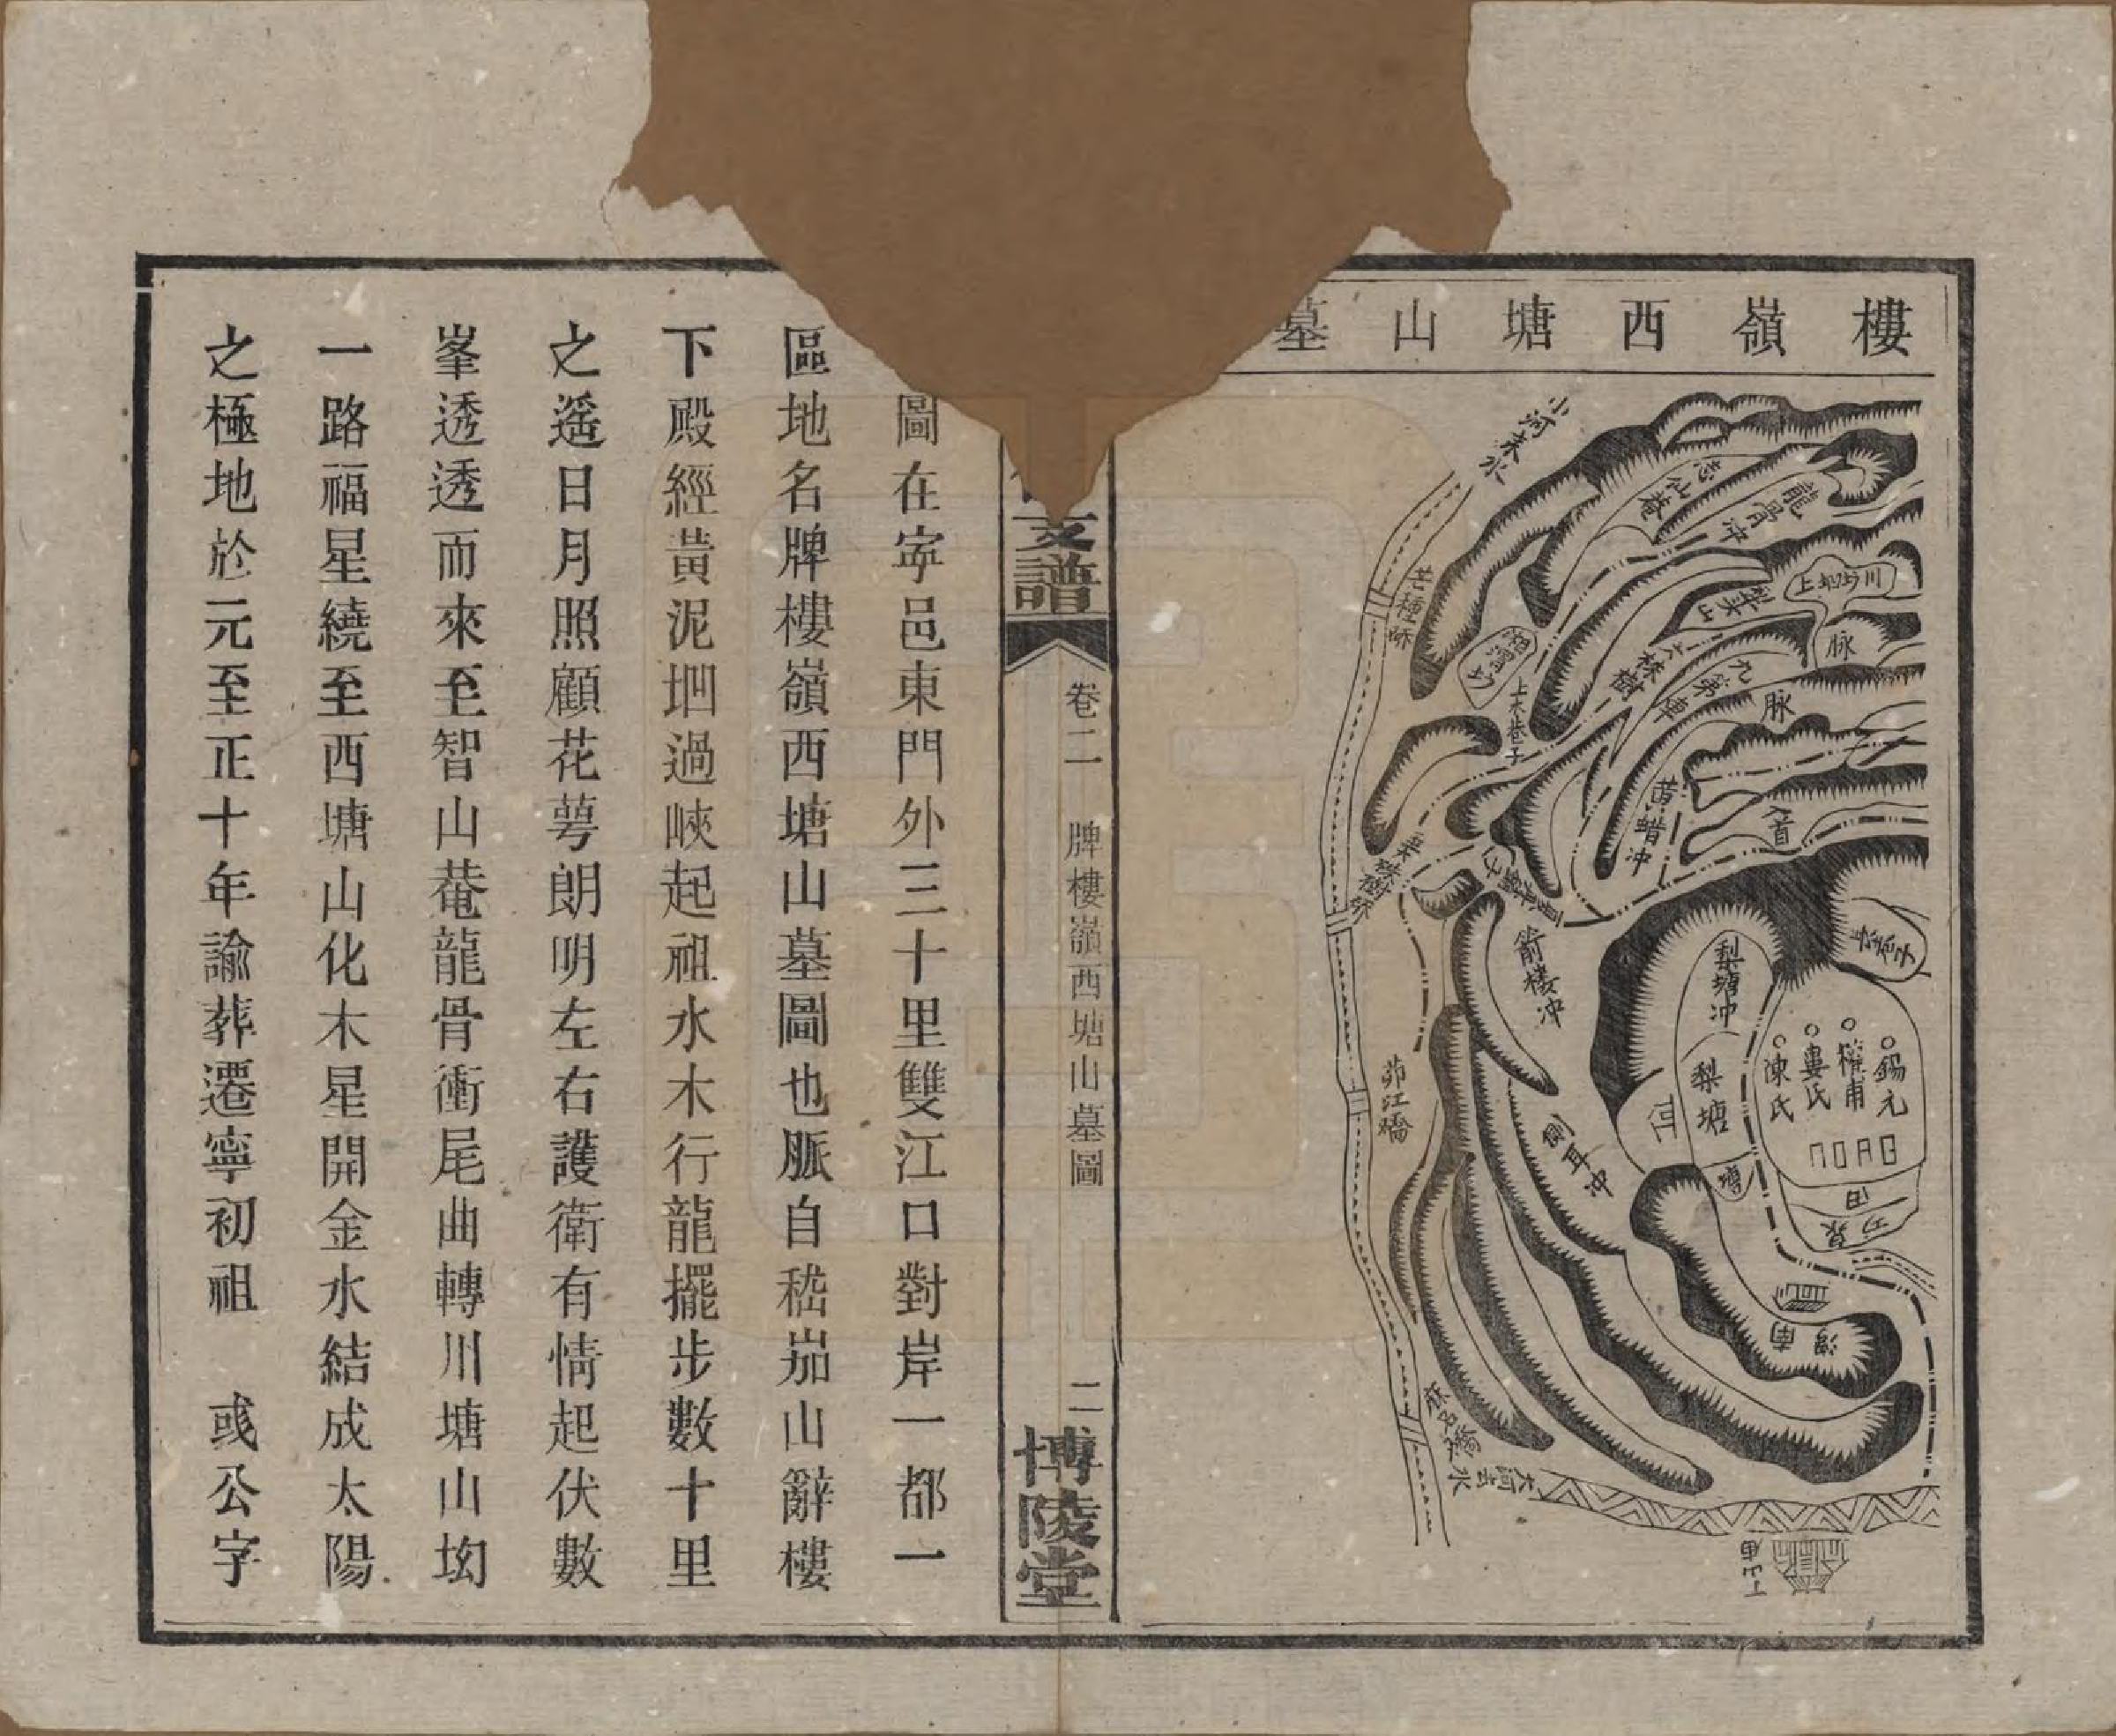 樓嶺西塘山墓
小河來水
芒種嬌
龍骨冲
上木巷子
六株樹
脉
脉
苦蜡冲
箭樓冲
梨塘冲
梨塘
錫元
權甫
婁氏
陳氏
側耳冲
茆江嬌
支譜
卷二
牌樓嶺西塘山墓圖
二
博陵堂
圖在寜邑東門外三十里雙江口對岸一都一
區地名牌樓嶺西塘山墓圖也脈自嵇茄山辭樓
下殿經黃泥坳過峽起祖水木行龍擺步數十里
之遙日月照顧花萼朗明左右護衛有情起伏數
峯透透而來至智山菴龍骨衝尾曲轉川塘山坳
一路福星繞至西塘山化木星開金水結成太陽
之極地於元至正十年諭葬遷寧初祖 彧公字